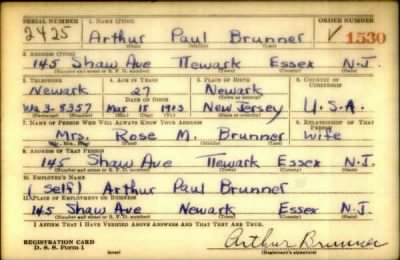 SERIAL NUMBER 1. NAME (Print) ORDER NUMBER
2425 Arthur Paul Brunner V 1530
(First) (Middle) (Last)
2. ADDRESS (Print)
145 Shaw Ave Newark Essex N.J.
(Number, street or R. F. D. number) (Town) (County) (State)
3. TELEPHONE 4. AGE IN YEARS 5. PLACE OF BIRTH 6. COUNTRY OF CITIZENSHIP
Newark 27 Newark
DATE OF BIRTH (Town or county)
3-8357 Mar 18 1913 New Jersey U.S.A.
7. NAME OF PERSON WHO WILL ALWAYS KNOW YOUR ADDRESS 8. RELATIONSHIP OF THAT PERSON
Mrs. Rose M. Brunner wife
(Mr., Mrs., Miss) (First) (Middle) (Last)
9. ADDRESS OF THAT PERSON
145 Shaw Ave Newark Essex N.J.
(Number, street or R. F. D. number) (Town) (County) (State)
10. EMPLOYER'S NAME
(Self) Arthur Paul Brunner
11. PLACE OF EMPLOYMENT OR BUSINESS
145 Shaw Ave Newark Essex N.J.
(Number, street or R. F. D. number) (Town) (County) (State)
I AFFIRM THAT I HAVE VERIFIED ABOVE ANSWERS AND THAT THEY ARE TRUE.
REGISTRATION CARD Arthur Brunner
D. S. S. Form 1 (over) (Registrant's signature)